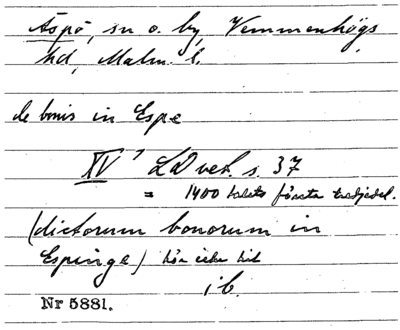 Äspö, sn o. by, Vemmenhögs
hd, Malm. l.
de bonis in Espe
XV¹ LD vet. s. 37
= 1400 talets första tredjedel.
(dictorum bonorum in
Espinge) hör icke hit
ib.
Nr 5881.